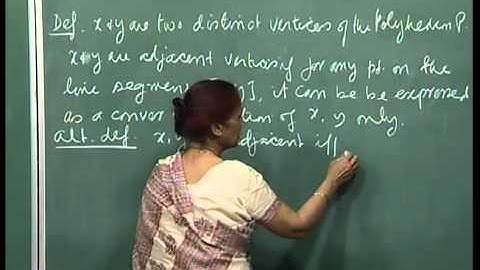 Def. x & y are two distinct vertices of the Polyhedron P.
x & y are adjacent vertices if for any pt. on the
line segment y], it can be be expressed
as a convex of x, y only.
Alt. def. x, adjacent iff